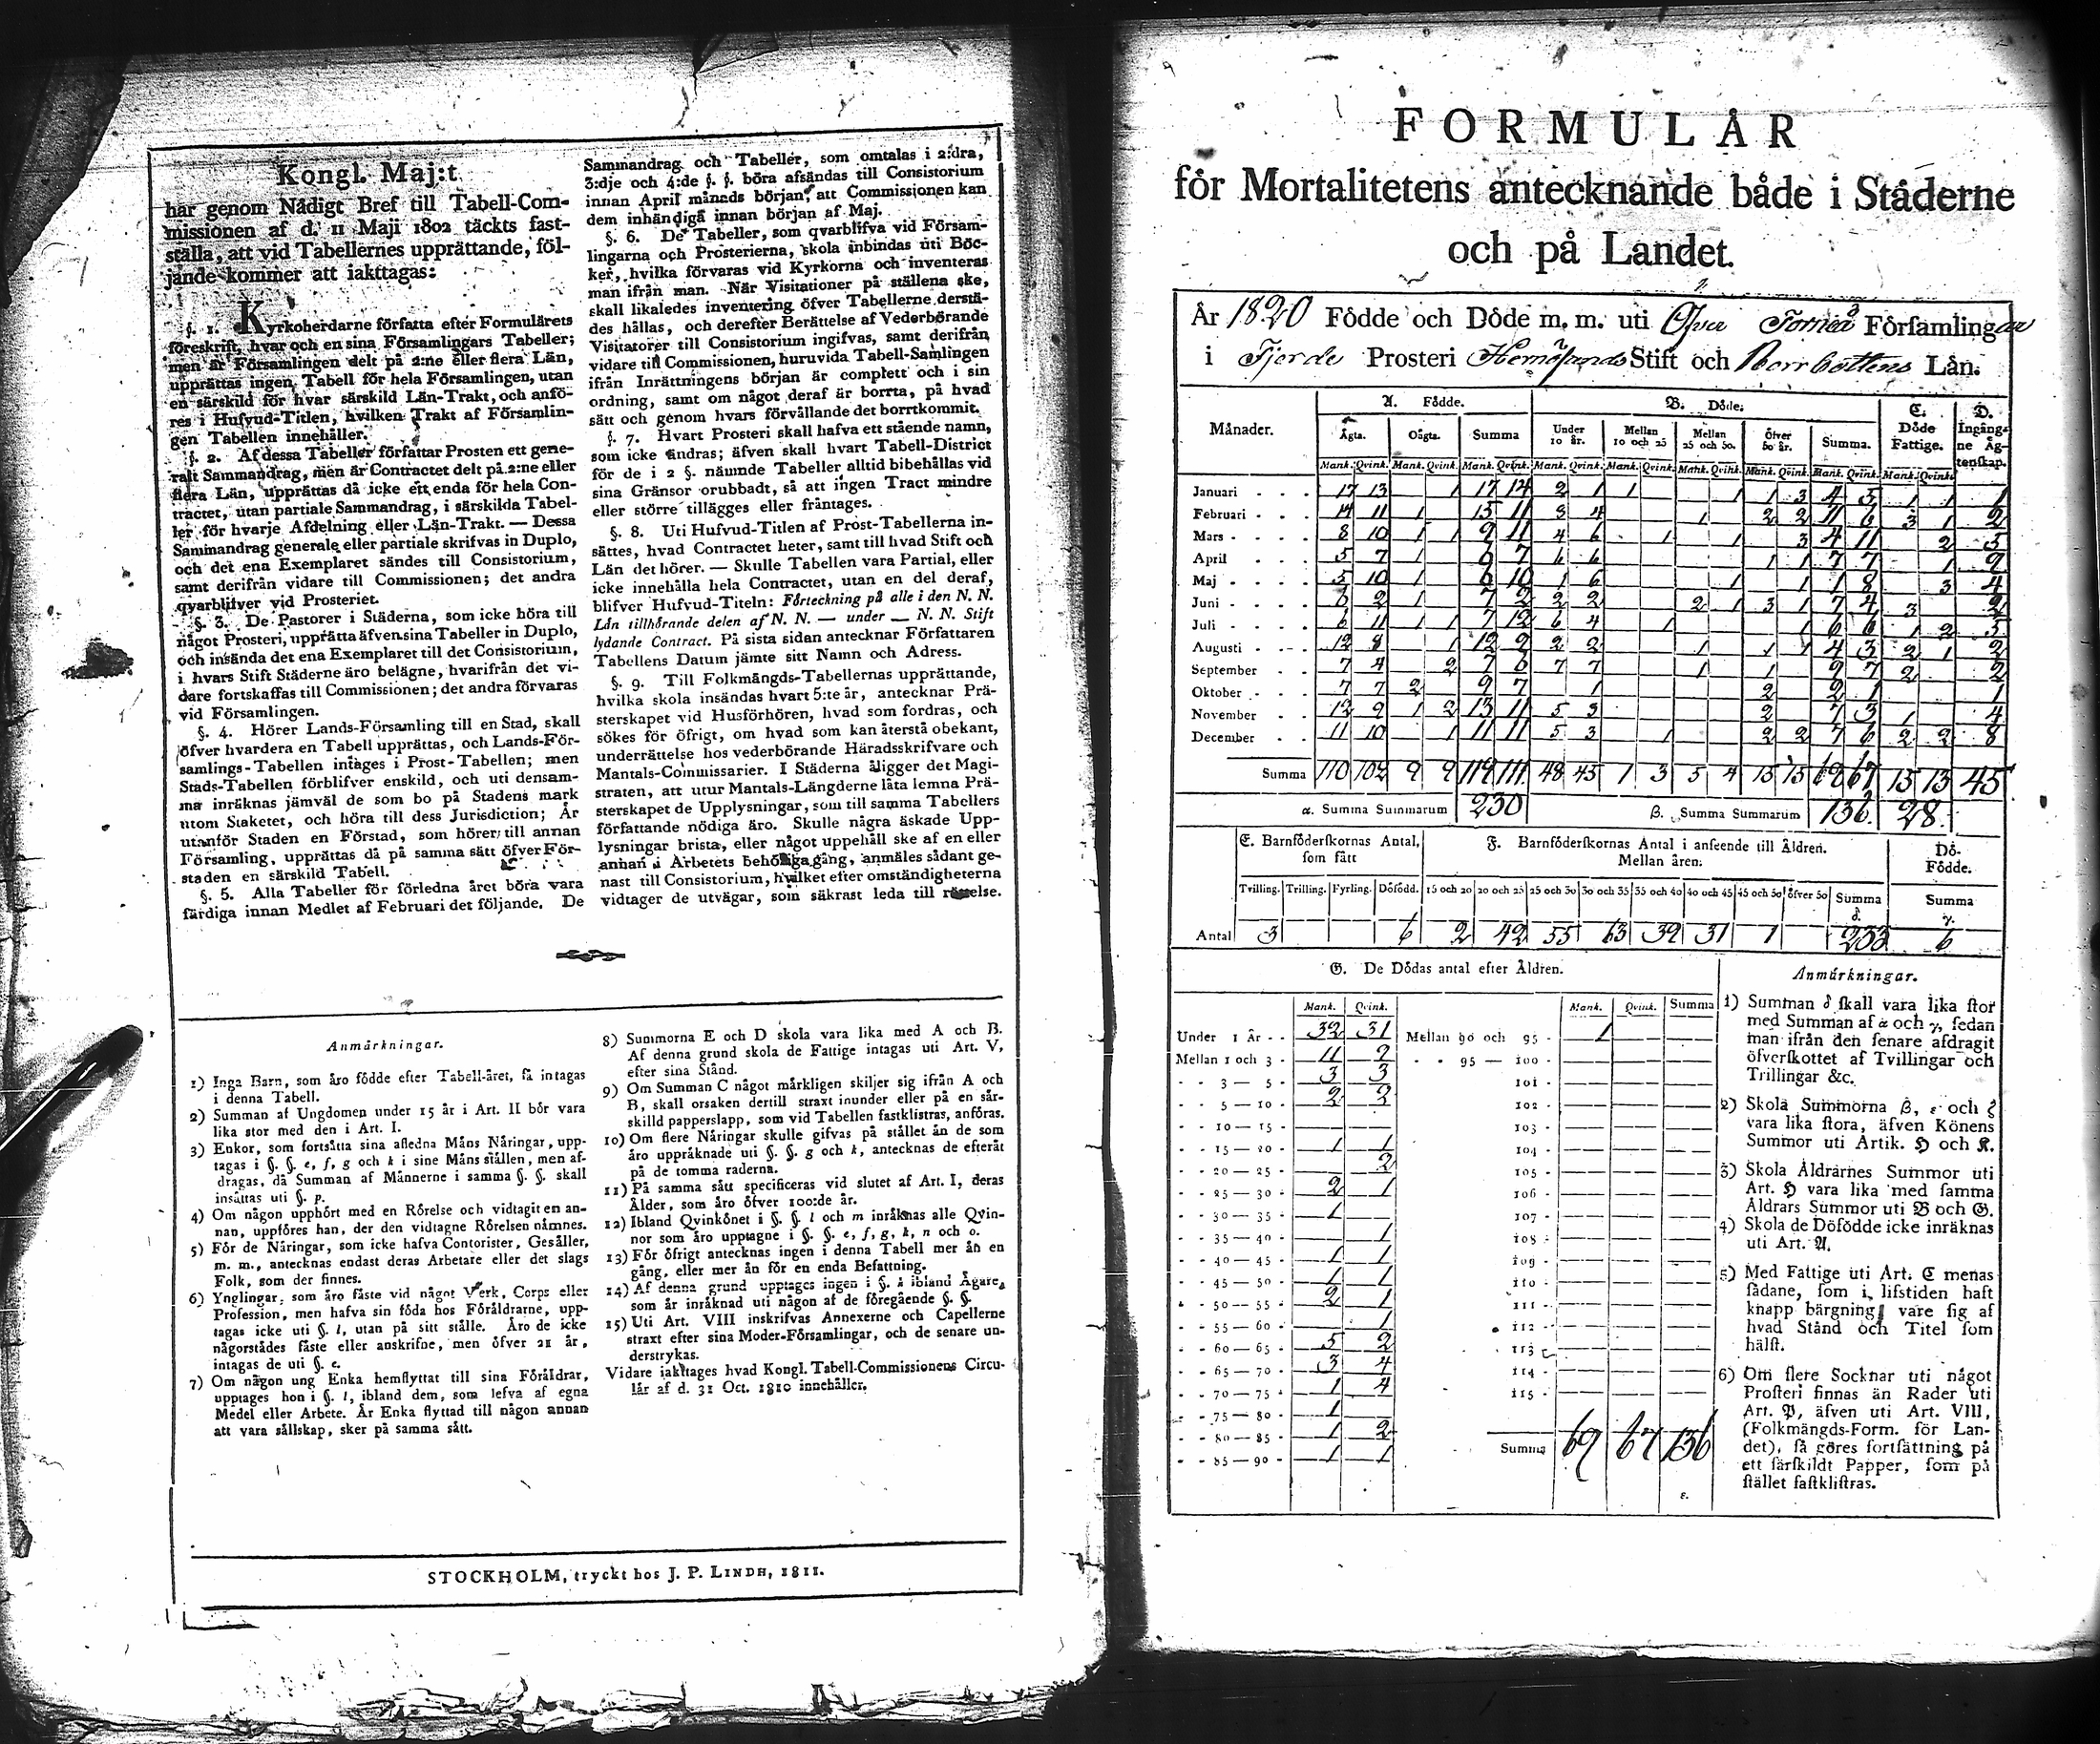 Kongl. Maj:t
har genom Nådigt Bref till Tabell-Com-
missionen af d. 11 Maji 1802 täckts fast-
ställa, att vid Tabellernes upprättande, föl-
jande kommer att iakttagas:
§. 1. Kyrkoherdarne författa efter Formulärets
föreskrift, hvar och en sina Församlingars Tabeller;
men är Församlingen delt på 2:ne eller flera Län,
upprättas ingen Tabell för hela Församlingen, utan
en särskild för hvar särskild Län-Trakt, och anfö-
res i Hufvud-Titlen, hvilken Trakt af Församlin-
gen Tabellen innehåller.
§. 2. Af dessa Tabeller författar Prosten ett gene-
ralt Sammandrag, men är Contractet delt på 2:ne eller
flera Län, upprättas då icke ett enda för hela Con-
tractet, utan partiale Sammandrag, i särskilda Tabel-
ler för hvarje Afdelning eller Län-Trakt. — Dessa
Sammandrag generale eller partiale skrifvas in Duplo,
och det ena Exemplaret sändes till Consistorium,
samt derifrån vidare till Commissionen; det andra
qvarblifver vid Prosteriet.
§. 3. De Pastorer i Städerna, som icke höra till
något Prosteri, upprätta äfven sina Tabeller in Duplo,
och insända det ena Exemplaret till det Consistorium,
i hvars Stift Städerne äro belägne, hvarifrån det vi-
dare fortskaffas till Commissionen; det andra förvaras
vid Församlingen.
§. 4. Hörer Lands-Församling till en Stad, skall
öfver hvardera en Tabell upprättas, och Lands-För-
samlings-Tabellen intages i Prost-Tabellen; men
Stads-Tabellen förblifver enskild, och uti densam-
ma inräknas jämväl de som bo på Stadens mark
utom Staketet, och höra till dess Jurisdiction; Är
utanför Staden en Förstad, som hörer till annan
Församling, upprättas då på samma sätt öfver För-
staden en särskild Tabell.
§. 5. Alla Tabeller för förledna året böra vara
färdiga innan Medlet af Februari det följande. De
Sammandrag och Tabeller, som omtalas i 2:dra,
3:dje och 4:de §. §. böra afsändas till Consistorium
innan April månads början, att Commissionen kan
dem inhändiga innan början af Maj.
§. 6. De Tabeller, som qvarblifva vid Försam-
lingarna och Prosterierna, skola inbindas uti Böc-
ker, hvilka förvaras vid Kyrkorna och inventeras
man ifrån man. När Visitationer på ställena ske,
skall likaledes inventering öfver Tabellerne derstä-
des hållas, och derefter Berättelse af Vederbörande
Visitatorer till Consistorium ingifvas, samt derifrån
vidare till Commissionen, huruvida Tabell-Samlingen
ifrån Inrättningens början är complett och i sin
ordning, samt om något deraf är borrta, på hvad
sätt och genom hvars förvållande det borrtkommit.
§. 7. Hvart Prosteri skall hafva ett stående namn,
som icke ändras; äfven skall hvart Tabell-District
för de i 2 §. nämnde Tabeller alltid bibehållas vid
sina Gränsor orubbadt, så att ingen Tract mindre
eller större tillägges eller fråntages.
§. 8. Uti Hufvud-Titlen af Prost-Tabellerna in-
sättes, hvad Contractet heter, samt till hvad Stift och
Län det hörer. — Skulle Tabellen vara Partial, eller
icke innehålla hela Contractet, utan en del deraf,
blifver Hufvud-Titeln: Förteckning på alle i den N. N.
Län tillhörande delen af N. N. — under — N. N. Stift
lydande Contract. På sista sidan antecknar Författaren
Tabellens Datum jämte sitt Namn och Adress.
§. 9. Till Folkmängds-Tabellernas upprättande,
hvilka skola insändas hvart 5:te år, antecknar Prä-
sterskapet vid Husförhören, hvad som fordras, och
sökes för öfrigt, om hvad som kan återstå obekant,
underrättelse hos vederbörande Häradsskrifvare och
Mantals-Commissarier. I Städerna åligger det Magi-
straten, att utur Mantals-Längderne låta lemna Prä-
sterskapet de Upplysningar, som till samma Tabellers
författande nödiga äro. Skulle några äskade Upp-
lysningar brista, eller något uppehåll ske af en eller
annan i Arbetets behöriga gång, anmäles sådant ge-
nast till Consistorium, hvilket efter omständigheterna
vidtager de utvägar, som säkrast leda till rättelse.
Anmärkningar.
1) Inga Barn, som äro födde efter Tabell-året, få intagas
i denna Tabell.
2) Summan af Ungdomen under 15 år i Art. II bör vara
lika stor med den i Art. I.
3) Enkor, som fortsätta sina afledna Mäns Näringar, upp-
tagas i §. §. e, f, g och k i sine Mäns ställen, men af-
dragas, då Summan af Männerne i samma §. §. skall
insättas uti §. p.
4) Om någon upphört med en Rörelse och vidtagit en an-
nan, uppföres han, der den vidtagne Rörelsen nämnes.
5) För de Näringar, som icke hafva Contorister, Gesäller,
m. m., antecknas endast deras Arbetare eller det slags
Folk, som der finnes.
6) Ynglingar, som äro fäste vid något Verk, Corps eller
Profession, men hafva sin föda hos Föräldrarne, upp-
tagas icke uti §. l, utan på sitt ställe. Äro de icke
någorstädes fäste eller anskrifne, men öfver 21 år,
intagas de uti §. e.
7) Om någon ung Enka hemflyttat till sina Föräldrar,
upptages hon i §. l, ibland dem, som lefva af egna
Medel eller Arbete. Är Enka flyttad till någon annan
att vara sällskap, sker på samma sätt.
8) Summorna E och D skola vara lika med A och B.
Af denna grund skola de Fattige intagas uti Art. V,
efter sina Stånd.
9) Om Summan C något märkligen skiljer sig ifrån A och
B, skall orsaken dertill straxt inunder eller på en sär-
skilld papperslapp, som vid Tabellen fastklistras, anföras.
10) Om flere Näringar skulle gifvas på stället än de som
äro uppräknade uti §. §. g och k, antecknas de efteråt
på de tomma raderna.
11) På samma sätt specificeras vid slutet af Art. I, deras
Ålder, som äro öfver 100:de år.
12) Ibland Qvinkönet i §. §. l och m inräknas alle Qvin-
nor som äro upptagne i §. §. e, f, g, k, n och o.
13) För öfrigt antecknas ingen i denna Tabell mer än en
gång, eller mer än för en enda Befattning.
14) Af denna grund upptages ingen i §. k ibland Ägare,
som är inräknad uti någon af de föregående §. §.
15) Uti Art. VIII inskrifvas Annexerne och Capellerne
straxt efter sina Moder-Församlingar, och de senare un-
derstrykas.
Vidare iakttages hvad Kongl. Tabell-Commissionens Circu-
lär af d. 31 Oct. 1810 innehåller.
STOCKHOLM, tryckt hos J. P. LINDH, 1811.
FORMULÄR
för Mortalitetens antecknande både i Städerne
och på Landet.
År 1820 Födde och Döde m. m. uti Öfver Torneå Församlingar
i Fjerde Prosteri Hernösands Stift och Norrbottens Län.
Månader. A. Födde. B. Döde. C. Döde Fattige. D. Ingång-ne Äg-tenskap.
Ägta. Oägta. Summa Under 10 år. Mellan 10 och 25 Mellan 25 och 50. Öfver 50 år. Summa.
Mank. Qvink. Mank. Qvink. Mank. Qvink. Mank. Qvink. Mank. Qvink. Mank. Qvink. Mank. Qvink. Mank. Qvink. Mank. Qvink.
Januari 17 13 1 17 14 2 1 1 1 1 3 4 5 1 1 1
Februari 14 11 1 15 11 8 4 1 2 2 11 6 3 1 2
Mars 8 10 1 1 9 11 4 6 1 1 3 4 11 2 5
April 5 7 1 6 7 6 6 1 1 7 7 1 9
Maj 5 10 1 6 10 1 6 1 1 1 8 3 4
Juni 6 2 1 7 2 2 2 2 1 3 1 7 4 3 2
Juli 6 11 1 1 7 12 6 4 1 1 6 6 1 2 5
Augusti 12 8 1 12 9 2 2 1 1 1 4 3 2 1 2
September 7 4 2 7 6 7 7 1 1 9 7 2 2
Oktober 7 7 2 9 7 1 2 2 1 1
November 12 9 1 2 13 11 5 3 2 7 3 1 4
December 11 10 1 11 11 5 3 1 2 2 7 6 2 2 8
Summa 110 102 9 9 119 111 48 45 1 3 5 4 15 15 69 67 15 13 45
α. Summa Summarum 230 β. Summa Summarum 136. 28.
E. Barnföderskornas Antal, som fått F. Barnföderskornas Antal i anseende till Åldren. Mellan åren: Dö-Födde.
Tvilling. Trilling. Fyrling. Dödfödd. 15 och 20 20 och 25 25 och 30 30 och 35 35 och 40 40 och 45 45 och 50 öfver 50 Summa δ. Summa γ.
Antal 3 6 2 42 55 63 39 31 1 233 6
G. De Dödas antal efter Åldren.
Mank. Qvink. Mank. Qvink. Summa
Under 1 År 32 31 Mellan 90 och 95 1
Mellan 1 och 3 11 9 95 — 100
3 — 5 3 3 101
5 — 10 2 2 102
10 — 15 103
15 — 20 1 1 104
20 — 25 2 105
25 — 30 2 1 106
30 — 35 1 107
35 — 40 1 108
40 — 45 1 1 109
45 — 50 1 1 110
50 — 55 2 1 111
55 — 60 1 112
60 — 65 5 2 113
65 — 70 3 4 114
70 — 75 1 4 115
75 — 80 1
80 — 85 1 2 Summa 69 67 136
85 — 90 1 1
ε.
Anmärkningar.
1) Summan δ skall vara lika stor
med Summan af α och γ, sedan
man ifrån den senare afdragit
öfverskottet af Tvillingar och
Trillingar &c.
2) Skola Summorna β, ε och ζ
vara lika stora, äfven Könens
Summor uti Artik. H och K.
3) Skola Åldrarnes Summor uti
Art. H vara lika med samma
Åldrars Summor uti B och G.
4) Skola de Döfödde icke inräknas
uti Art. A.
5) Med Fattige uti Art. C menas
sådane, som i lifstiden haft
knapp bärgning, vare sig af
hvad Stånd och Titel som
hälst.
6) Om flere Socknar uti något
Prosteri finnas än Rader uti
Art. P, äfven uti Art. VIII,
(Folkmängds-Form. för Lan-
det), så göres fortsättning på
ett särskildt Papper, som på
stället fastklistras.